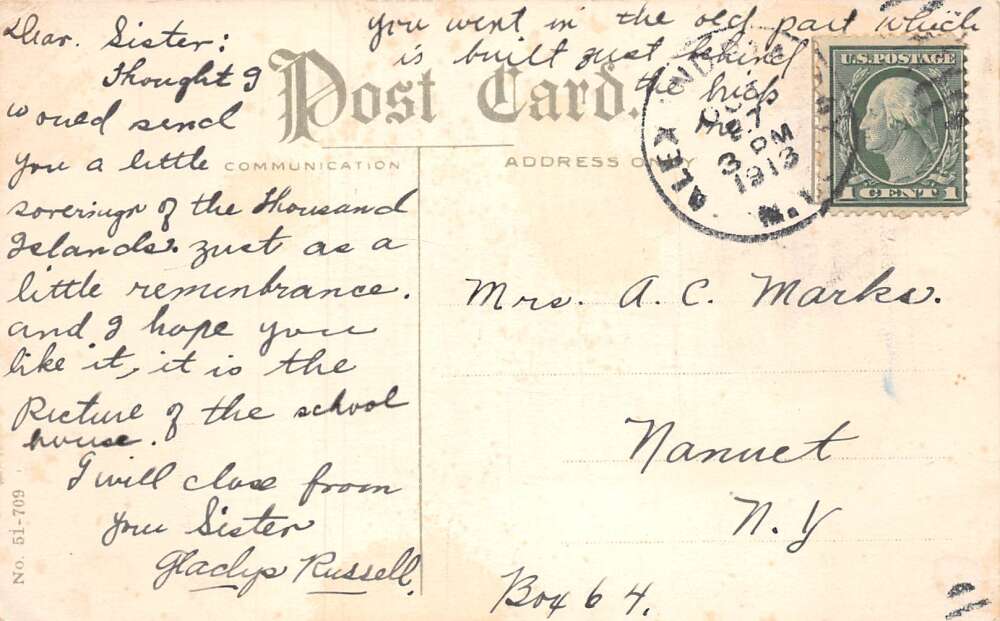 Dear. Sister:
Thought I
would send
you a little
soveringr of the Thousand
Islands. Just as a
little remembrance.
and I hope you
like it, it is the
Picture of the school
house.
I will close from
your Sister
Gladys Russell.
you went in the old part which
is built just behind
the high
Post Card.
COMMUNICATION
ADDRESS ONLY
ALEX
3 PM
1913
N.Y.
U.S. POSTAGE
1 CENT 1
Mrs. A. C. Marks.
Nanuet
N. Y
Box 64.
No. 51-709